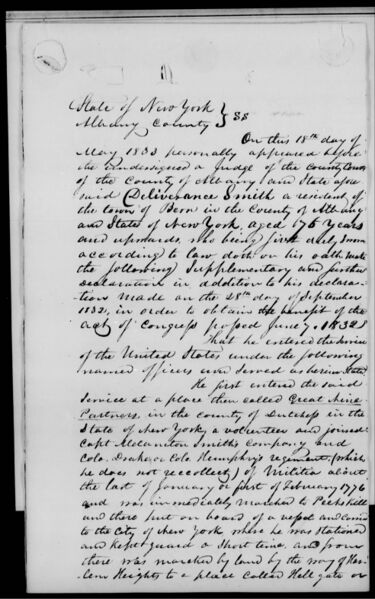 State of New York
Albany County } SS
On this 18th day of
May 1833 personally appeared before
the undersigned a Judge of the County Court
of the County of Albany and State afore
said Deliverance Smith a resident of
the town of Bern in the County of Albany
and State of New York, aged 76 Years
and upwards, who being first duly sworn
according to law doth on his oath make
the following Supplementary and further
declaration in addition to his declara-
tion made on the 28th day of September
1832, in order to obtain the benefit of the
act of Congress passed June 7. 1832
That he entered the service
of the United States under the following
named officers and served as herein Stated
He first entered the said
Service at a place then called Great Nine
Partners, in the county of Dutchess in the
State of New York, a volunteer and joined
Capt Melancton Smiths Company and
Colo. Drake or Colo Humphry's regiment (which
he does not recollect) of Militia about
the last of January or first of February 1776
and was immediately marched to Peekskill
and there put on board of a vessel and carried
to the City of New York where he was stationed
and kept guard a short time, and from
there was marched by land by the way of Har-
lem Heights to a place called Hell gate or